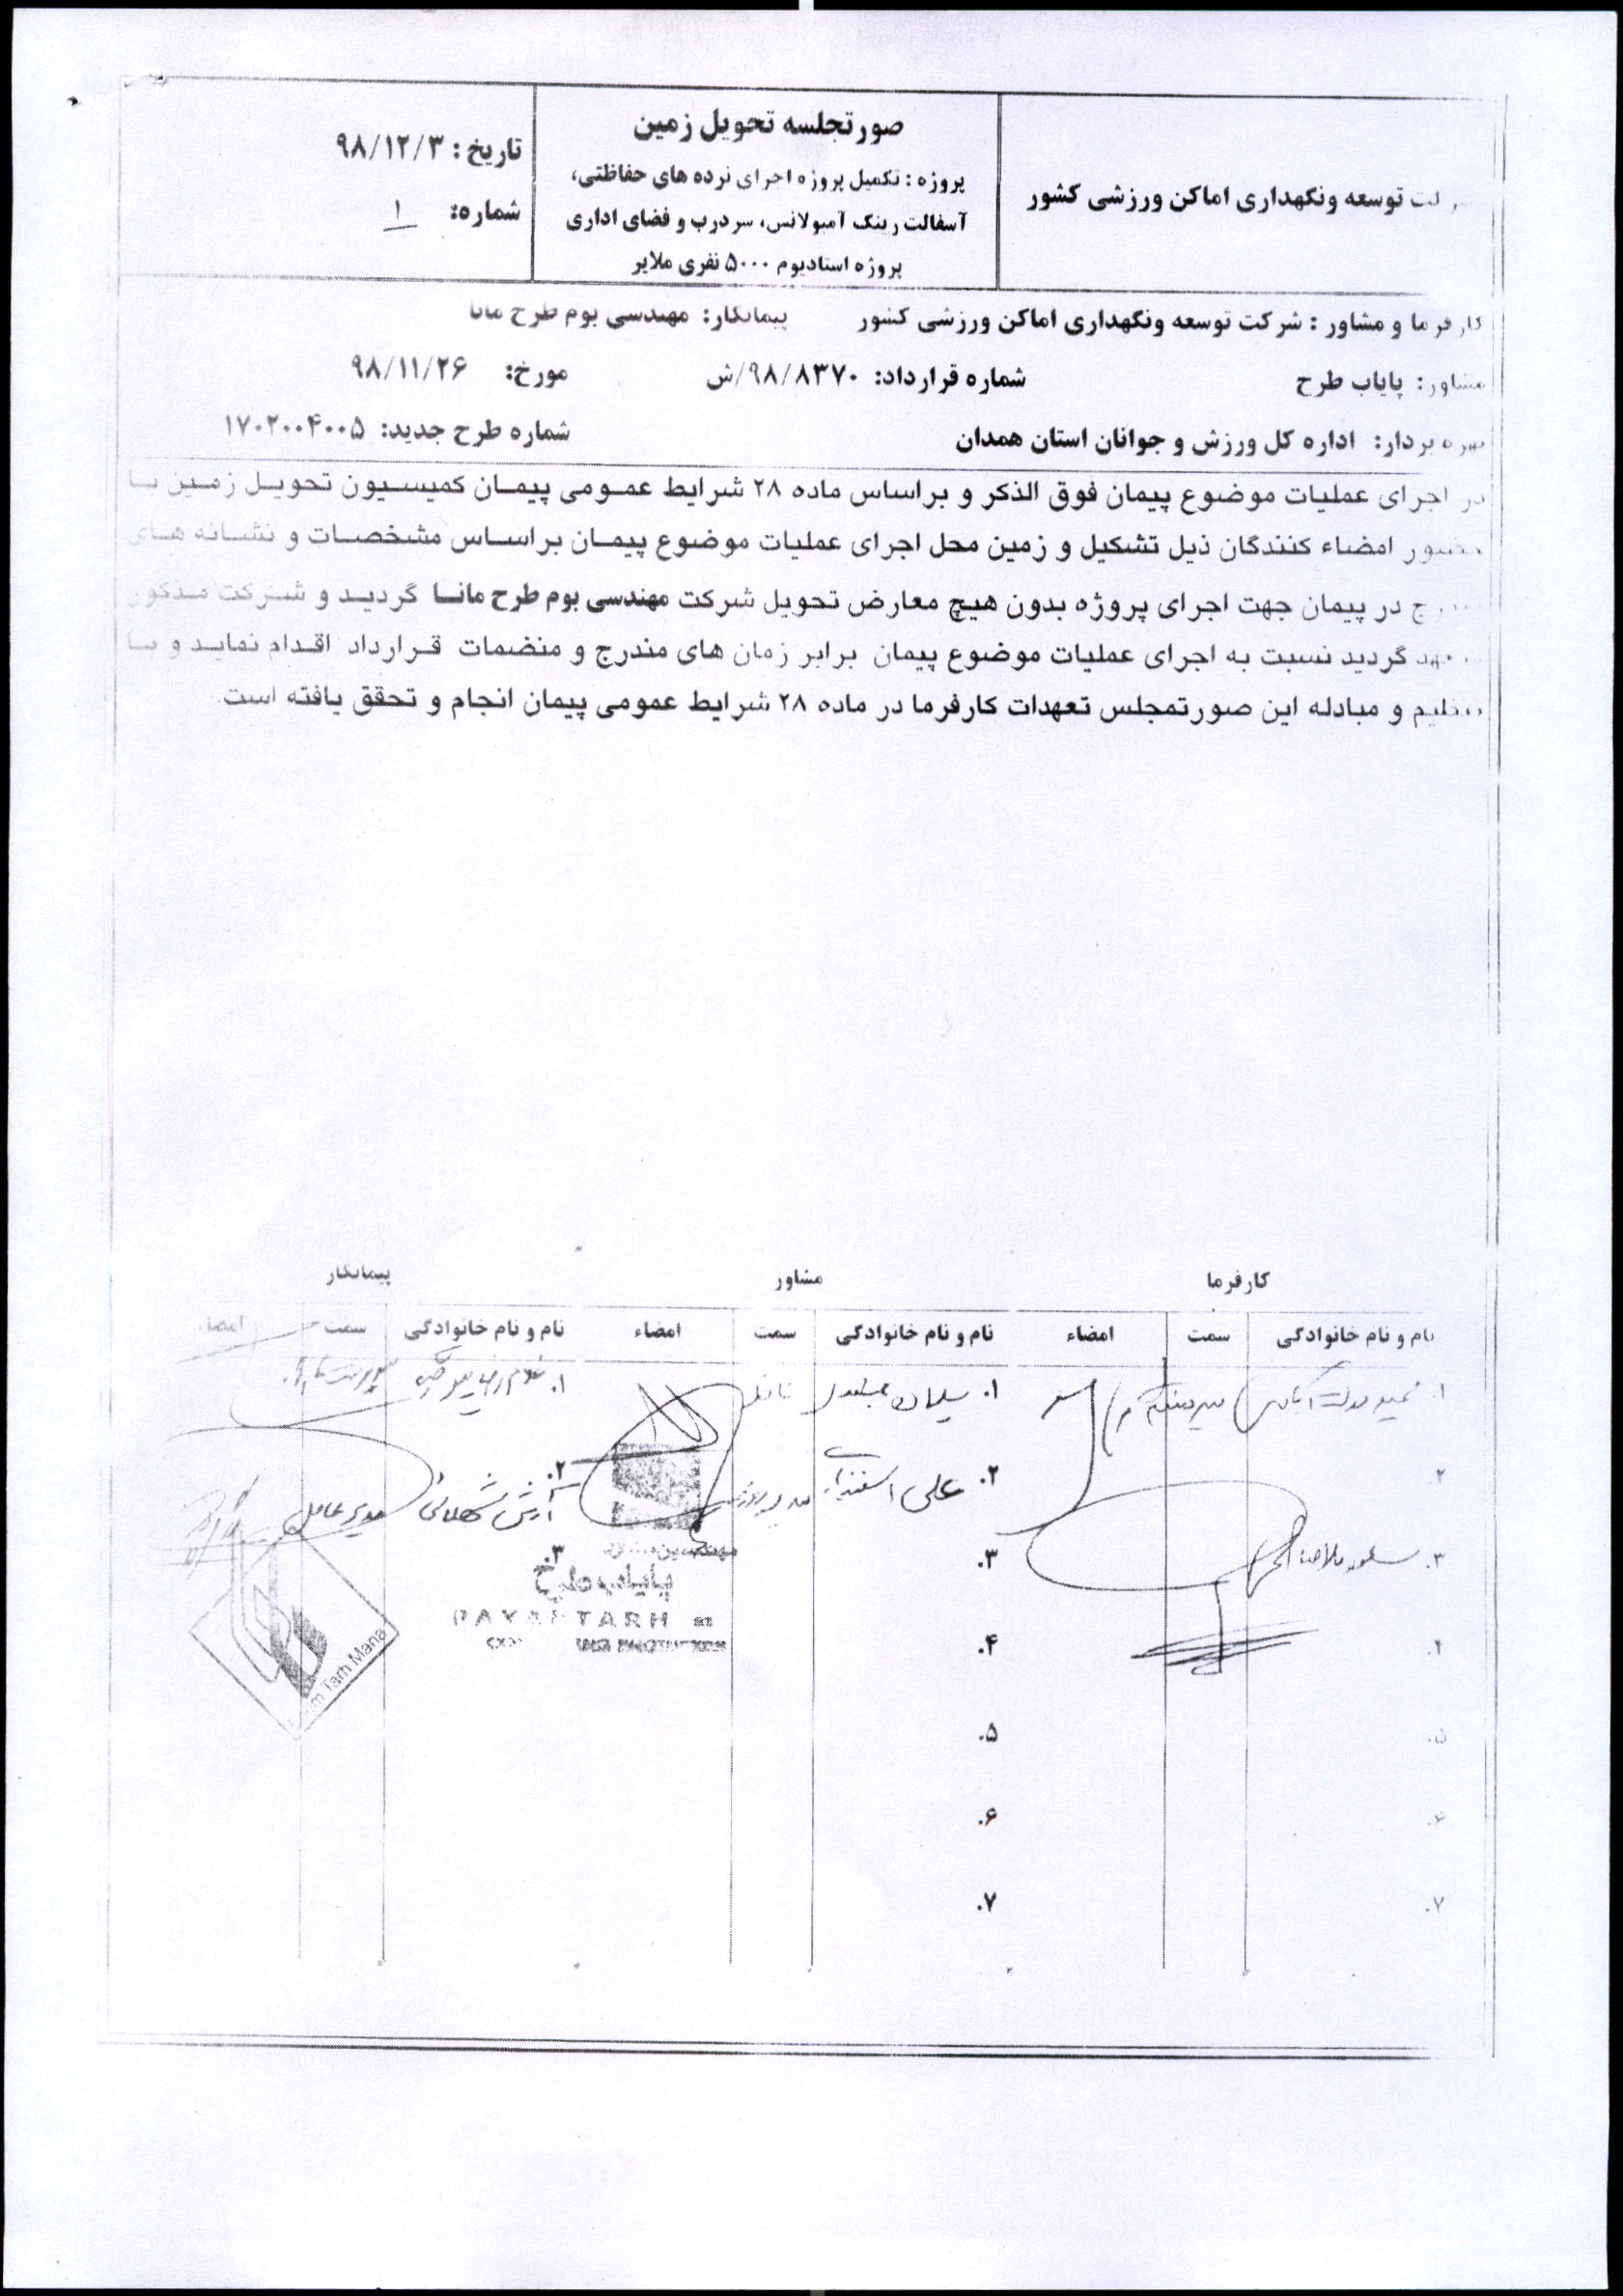 توسعه ونگهداری اماکن ورزشی کشور
صورتجلسه تحویل زمین
پروژه : تکمیل پروژه اجرای نرده های حفاظتی،
آسفالت رینگ آمبولانس، سردرب و فضای اداری
پروژه استادیوم ۵۰۰۰ نفری ملایر
تاریخ : ۹۸/۱۲/۳
شماره: ۱
کارفرما و مشاور : شرکت توسعه ونگهداری اماکن ورزشی کشور پیمانکار: مهندسی بوم طرح مانا
مشاور: پایاب طرح شماره قرارداد: ۹۸/۸۳۷۰/ش مورخ: ۹۸/۱۱/۲۶
بهره بردار: اداره کل ورزش و جوانان استان همدان شماره طرح جدید: ۱۷۰۲۰۰۴۰۰۵
در اجرای عملیات موضوع پیمان فوق الذکر و براساس ماده ۲۸ شرایط عمومی پیمان کمیسیون تحویل زمین با
حضور امضاء کنندگان ذیل تشکیل و زمین محل اجرای عملیات موضوع پیمان براساس مشخصات و نشانه های
در پیمان جهت اجرای پروژه بدون هیچ معارض تحویل شرکت مهندسی بوم طرح مانا گردید و شرکت مذکور
گردید نسبت به اجرای عملیات موضوع پیمان برابر زمان های مندرج و منضمات قرارداد اقدام نماید و با
تنظیم و مبادله این صورتمجلس تعهدات کارفرما در ماده ۲۸ شرایط عمومی پیمان انجام و تحقق یافته است.
کارفرما مشاور پیمانکار
نام و نام خانوادگی سمت امضاء نام و نام خانوادگی سمت امضاء نام و نام خانوادگی سمت امضاء
۱. ۱. سلمان ۱.
۲. ۲. علی اسفندیار ۲. آرش مدیرعامل
۳. ۳. ۳.
پایاب طرح
TARH
Tarh Mana
۴.
۵. ۵.
۶. ۶.
۷. ۷.